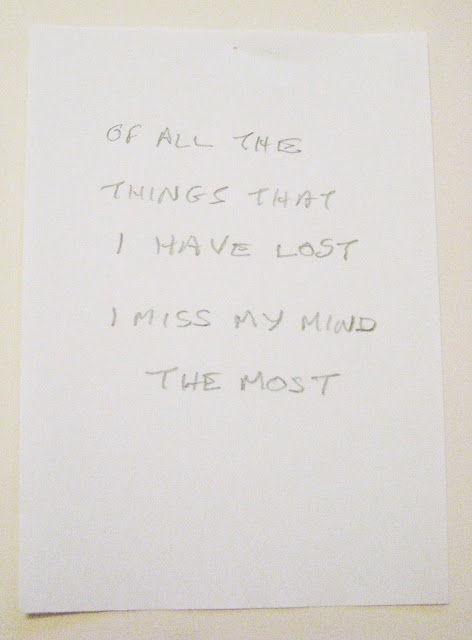 OF ALL THE
THINGS THAT
I HAVE LOST
I MISS MY MIND
THE MOST